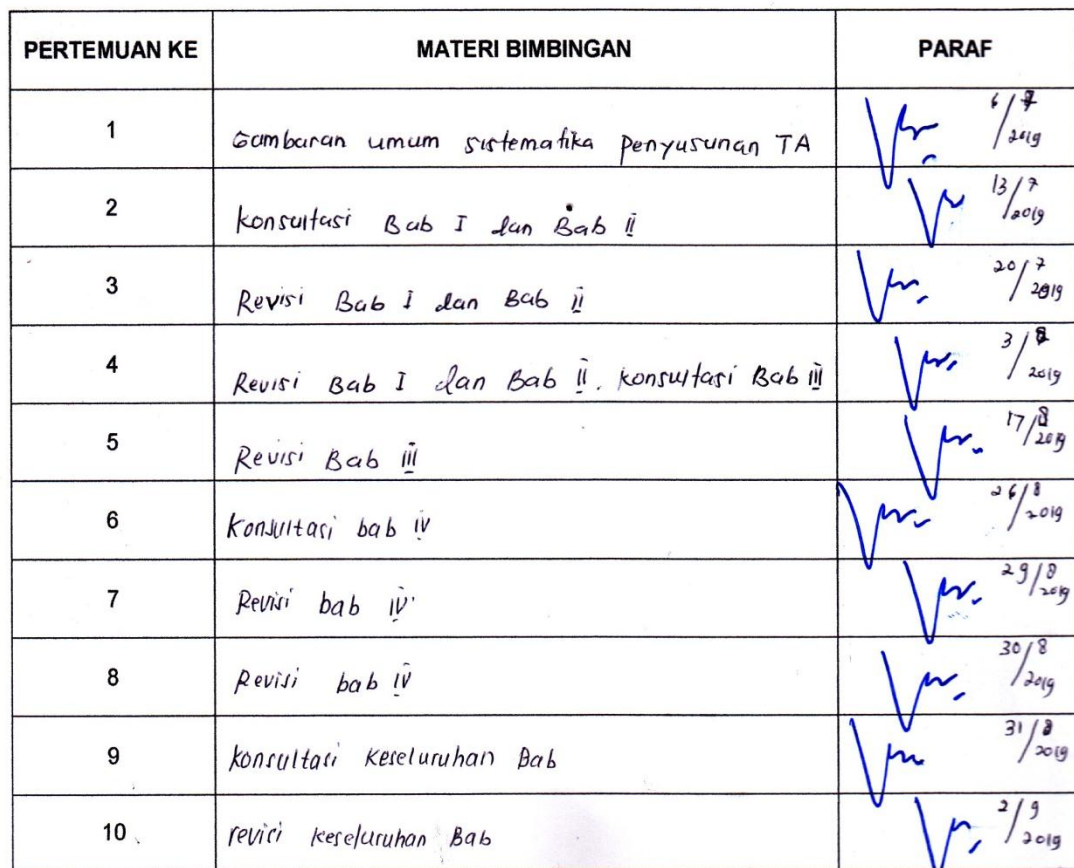 PERTEMUAN KE MATERI BIMBINGAN PARAF
1 Gambaran umum sistematika penyusunan TA 6/7 2019
2 konsultasi Bab I dan Bab II 13/7 2019
3 Revisi Bab I dan Bab II 20/7 2019
4 Revisi Bab I dan Bab II. konsultasi Bab III 3/8 2019
5 Revisi Bab III 17/8 2019
6 Konsultasi bab IV 26/8 2019
7 Revisi bab IV 29/8 2019
8 Revisi bab IV 30/8 2019
9 konsultasi keseluruhan Bab 31/8 2019
10 revisi keseluruhan Bab 2/9 2019